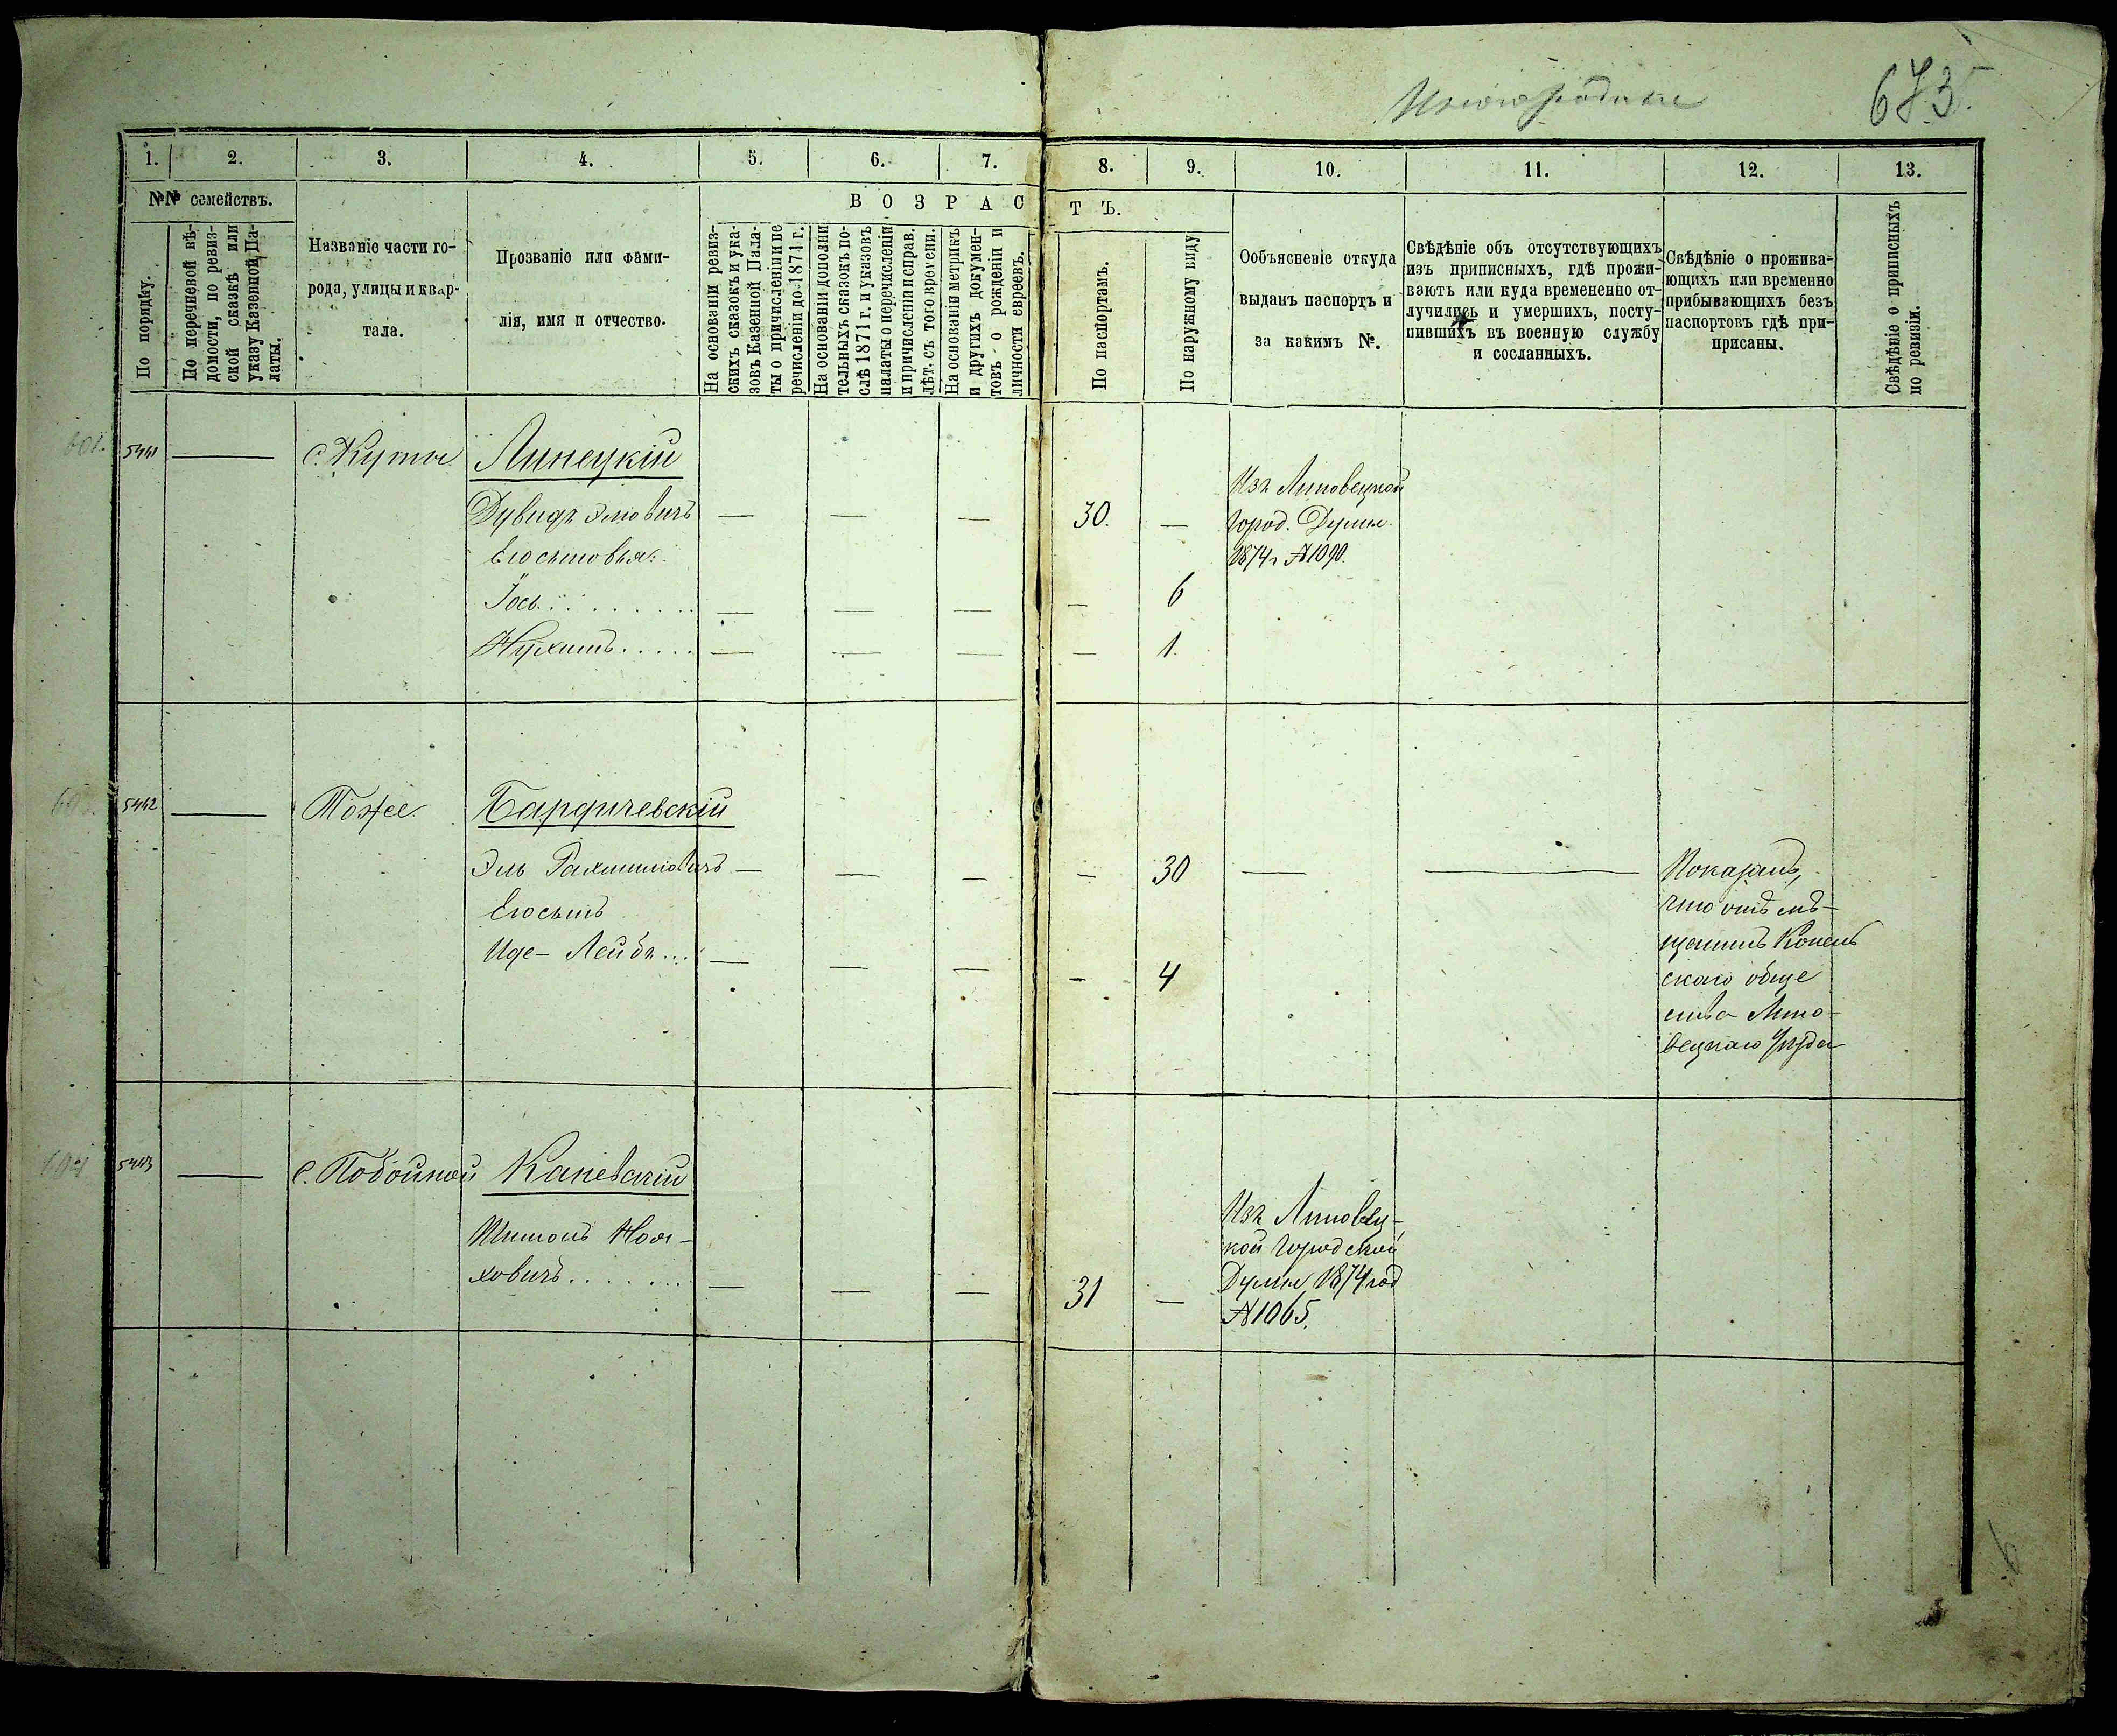 Иногородные
673.
1. 2. 3. 4. 5. 6. 7. 8. 9. 10. 11. 12. 13.
№№ семействъ.
По порядку.
По перечневой вѣ-
домости, по ревиз-
ской сказкѣ или
указу Казенной Па-
латы.
Названіе части го-
рода, улицы и квар-
тала.
Прозваніе или фами-
лія, имя и отчество.
ВОЗРАСТЪ.
На основаніи ревиз-
скихъ сказокъ и ука-
зовъ Казенной Пала-
ты о причисленіи и пе
речисленіи до 1871 г.
На основаніи дополни
тельныхъ сказокъ по-
слѣ 1871 г. и указовъ
палаты о перечисленіи
и причисленіи п справ.
лѣт. съ того времени.
На основаніи метрикъ
и другихъ докумен-
товъ о рожденіи и
личности евреевъ.
По паспортамъ.
По наружному виду
Ообъясненіе откуда
выданъ паспортъ и
за какимъ №.
Свѣдѣніе объ отсутствующихъ
изъ приписныхъ, гдѣ прожи-
ваютъ или куда времененно от-
лучились и умершихъ, посту-
пившихъ въ военную службу
и сосланныхъ.
Свѣдѣніе о прожива-
ющихъ или временно
прибывающихъ безъ
паспортовъ гдѣ при-
писаны.
Свѣдѣніе о приписныхъ
по ревизіи.
5441 — с. Куты Линецкій
Дувидъ — — — 30. —
Изъ Липовецкой
Город. Думы
1874 г №1090.
Іось — — — — 6
Нухимъ — — — — 1.
5442 — Тоже. Бардичевскій
Эль Рахмиловичъ — — — — 30 — —
Іосьтъ
Иде-Лейбъ — — — — 4
Показалъ,
что онъ мѣ-
щанинъ
скаго обще
ства Липо-
вецкаго Уѣзда
5443 — с. Побойной Каневскій
Шимонъ Ноа-
ховичъ — — — 31 —
Изъ Липовец-
кой Городской
Думы 1874 год
№1065.